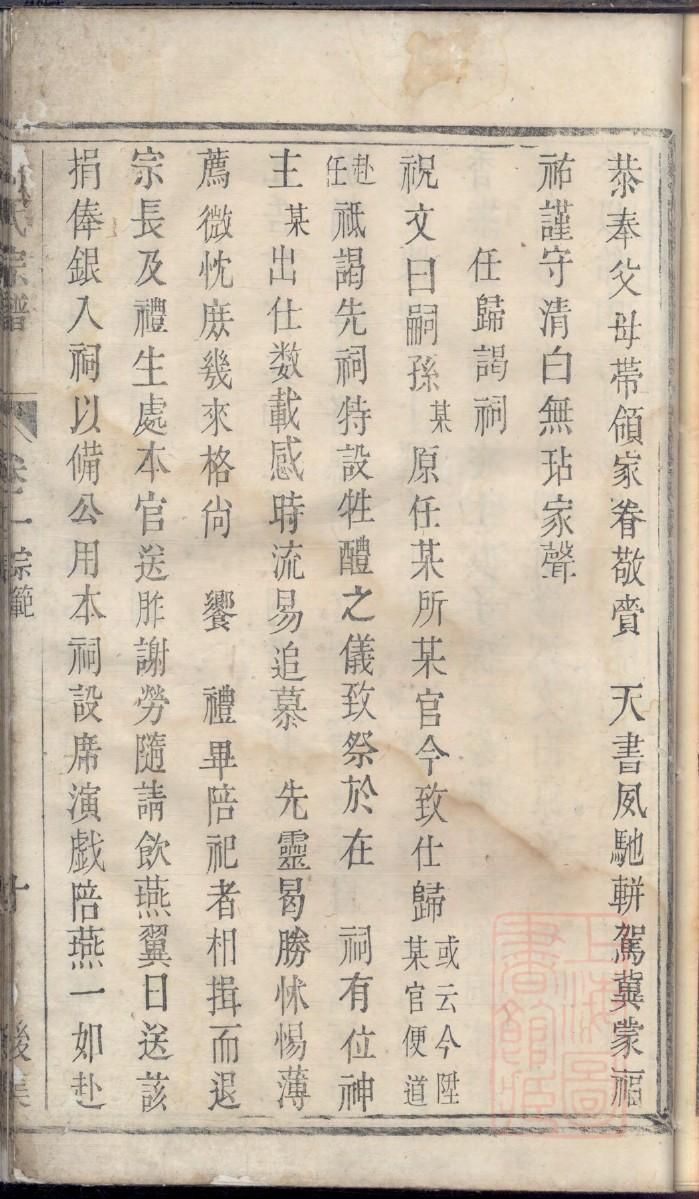 恭奉父母帶領家眷敬賫　天書凨馳輧駕冀蒙福
祐謹守清白無玷家聲
任歸謁祠
祝文曰嗣孫某原任某所某官今致仕歸或云今陞某官便道
赴任祗謁先祠特設牲醴之儀致祭於在　祠有位神
主某出仕数載感時流易追慕　先靈曷勝怵惕薄
薦微忱庶幾來格尙　饗　禮畢陪祀者相揖而退
宗長及禮生處本官送胙謝勞隨請飲燕翼日送該
捐俸銀入祠以備公用本祠設席演戯陪燕一如赴
氏宗譜　卷一宗範　十
上海圖書館藏